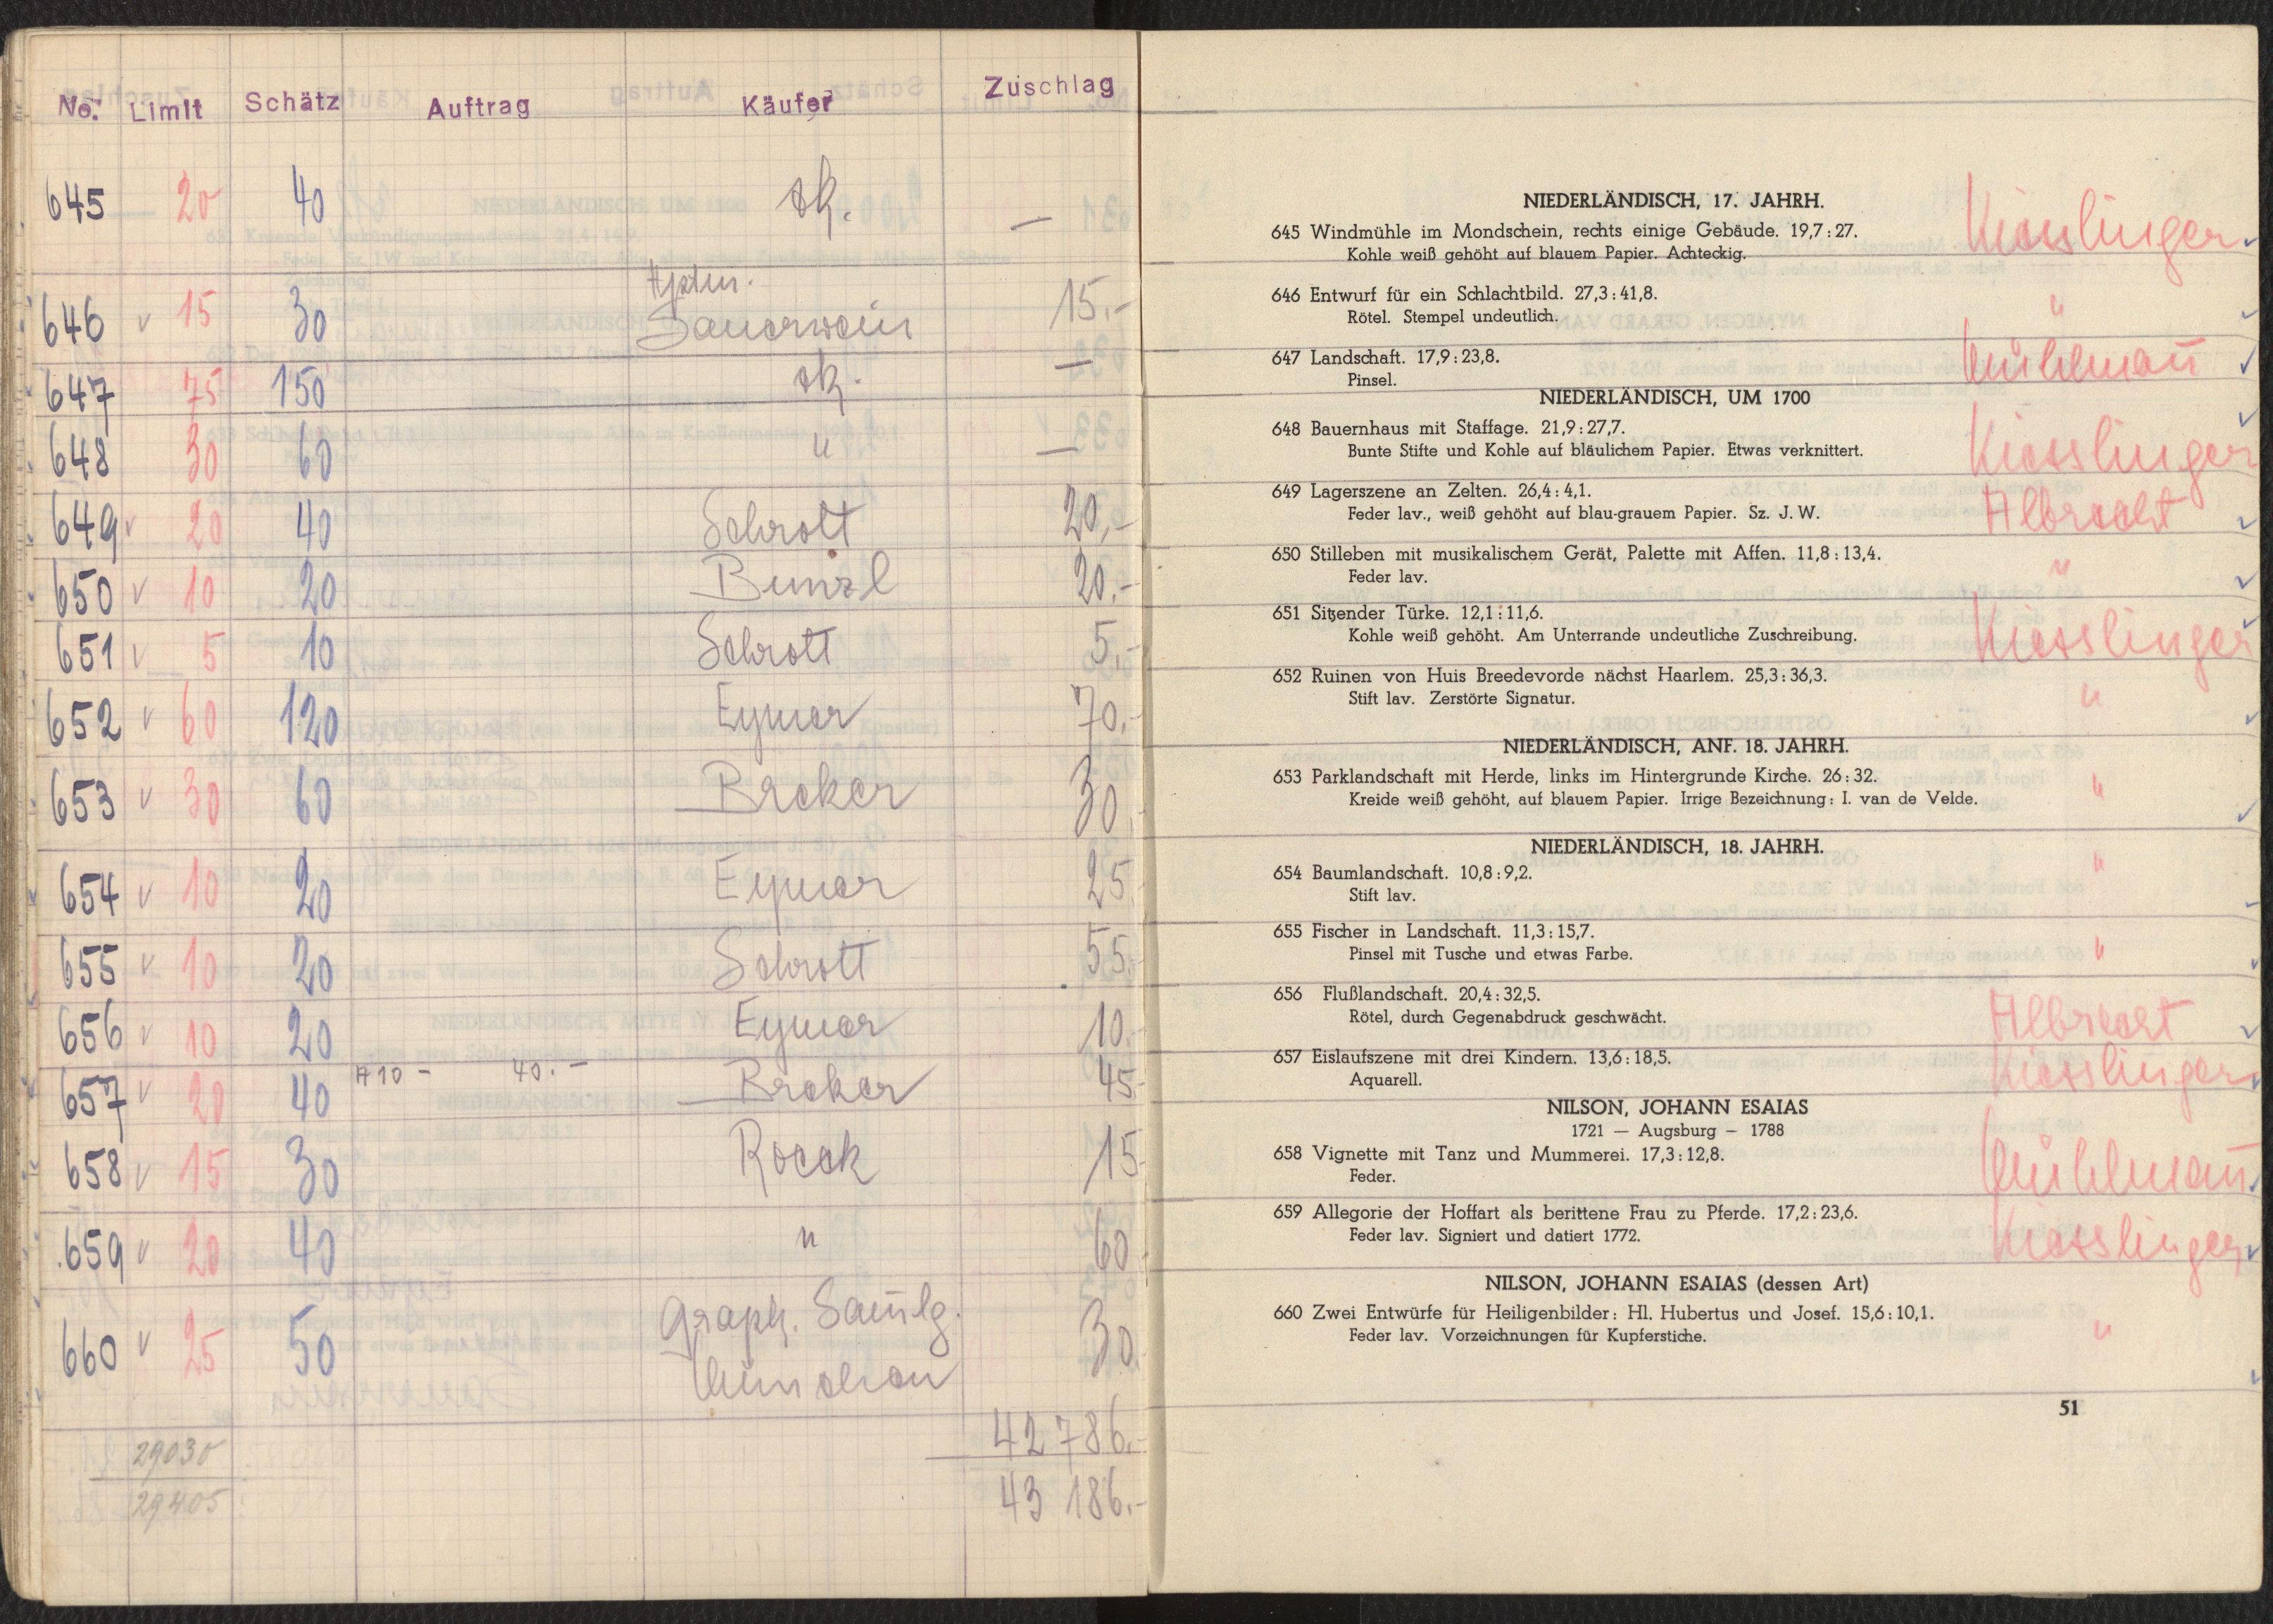 No. Limit Schätz Auftrag Käufer Zuschlag
645 20 40 —
646 v 15 30 Sauerwein 15.-
647 75 150 —
648 30 60 " —
649 v 20 40 Schrott 20,-
650 v 10 20 Bunzl 20.-
651 v 5 10 Schrott 5,-
652 v 60 120 Eymer 70.-
653 v 30 60 Breker 30.
654 v 10 20 Eymer 25.
655 v 10 20 Schrott 55.
656 v 10 20 Eymer 10.
657 v 20 40 A 10 - 40.- Breker 45.-
658 v 15 30 Roeck 15.
659 v 20 40 " 60
660 v 25 50 Graph. Samlg. 30.
München
42 786.-
29030
43 186.-
29405
NIEDERLÄNDISCH, 17. JAHRH.
645 Windmühle im Mondschein, rechts einige Gebäude. 19,7 : 27. Kiesslinger
Kohle weiß gehöht auf blauem Papier. Achteckig.
646 Entwurf für ein Schlachtbild. 27,3 : 41,8. "
Rötel. Stempel undeutlich.
647 Landschaft. 17,9 : 23,8. Mühlman̄
Pinsel.
NIEDERLÄNDISCH, UM 1700
648 Bauernhaus mit Staffage. 21,9 : 27,7. Kiesslinger
Bunte Stifte und Kohle auf bläulichem Papier. Etwas verknittert.
649 Lagerszene an Zelten. 26,4 : 4,1. Albrecht
Feder lav., weiß gehöht auf blau-grauem Papier. Sz. J. W.
650 Stilleben mit musikalischem Gerät, Palette mit Affen. 11,8 : 13,4. "
Feder lav.
651 Sitzender Türke. 12,1 : 11,6. Kiesslinger
Kohle weiß gehöht. Am Unterrande undeutliche Zuschreibung.
652 Ruinen von Huis Breedevorde nächst Haarlem. 25,3 : 36,3. "
Stift lav. Zerstörte Signatur.
NIEDERLÄNDISCH, ANF. 18. JAHRH.
653 Parklandschaft mit Herde, links im Hintergrunde Kirche. 26 : 32. "
Kreide weiß gehöht, auf blauem Papier. Irrige Bezeichnung: I. van de Velde.
NIEDERLÄNDISCH, 18. JAHRH.
654 Baumlandschaft. 10,8 : 9,2. "
Stift lav.
655 Fischer in Landschaft. 11,3 : 15,7. "
Pinsel mit Tusche und etwas Farbe.
656 Flußlandschaft. 20,4 : 32,5. Albrecht
Rötel, durch Gegenabdruck geschwächt.
657 Eislaufszene mit drei Kindern. 13,6 : 18,5. Kiesslinger
Aquarell.
NILSON, JOHANN ESAIAS
1721 — Augsburg — 1788
658 Vignette mit Tanz und Mummerei. 17,3 : 12,8. Mühlman̄
Feder.
659 Allegorie der Hoffart als berittene Frau zu Pferde. 17,2 : 23,6. Kiesslinger
Feder lav. Signiert und datiert 1772.
NILSON, JOHANN ESAIAS (dessen Art)
660 Zwei Entwürfe für Heiligenbilder: Hl. Hubertus und Josef. 15,6 : 10,1. "
Feder lav. Vorzeichnungen für Kupferstiche.
51